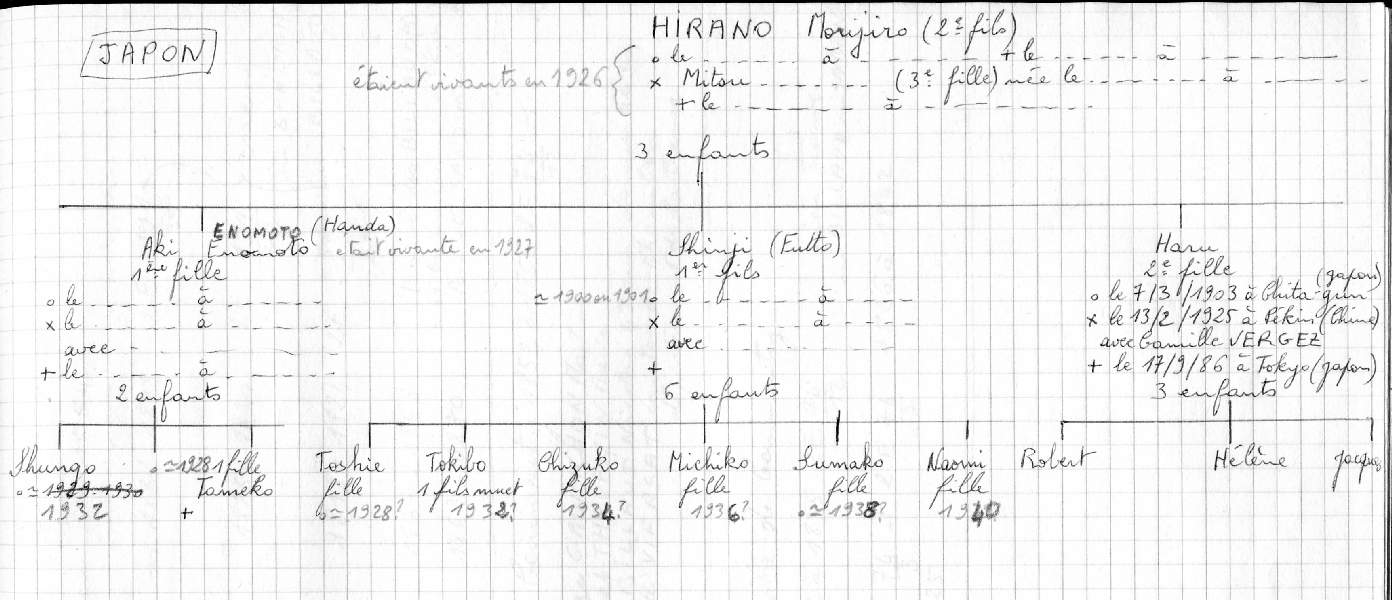 JAPON
HIRANO Morijiro (2e fils)
° le _ _ _ à _ _ _ + le _ _ _ à _ _ _
étaient vivants en 1926 { × Mitsu _ _ _ (3e fille) née le _ _ _ à _ _ _
+ le _ _ _ à _ _ _
3 enfants
ENOMOTO (Handa)
Aki Enomoto était vivante en 1927
1ère fille
° le _ _ _ à _ _ _
× le _ _ _ à _ _ _
avec _ _ _
+ le _ _ _ à _ _ _
2 enfants
Shungo
° ≃ 1929-1930
1932
° ≃ 1928 1 fille
Tameko
+
Shinji (Futto)
1er fils
≃ 1900 ou 1901 ° le _ _ _ à _ _ _
× le _ _ _ à _ _ _
avec _ _ _
+
6 enfants
Toshie
fille
° ≃ 1928?
Tokibo
1 fils muet
1932?
Chizuko
fille
1934?
Michiko
fille
1936?
Sumako
fille
° ≃ 1938?
Naomi
fille
1940
Haru
2e fille
(Japon)
° le 7/3/1903 à Chita-gun
× le 13/2/1925 à Pékin (Chine)
avec Camille VERGEZ
+ le 17/9/86 à Tokyo (Japon)
3 enfants
Robert
Hélène
Jacques